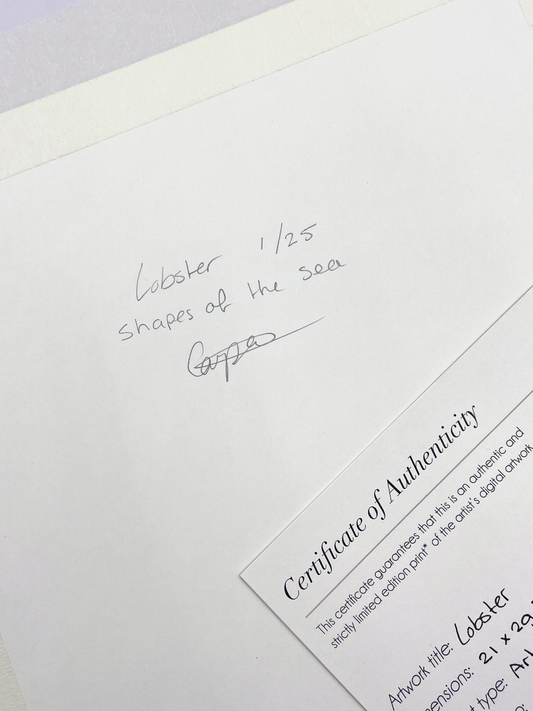 Lobster 1/25
shapes of the sea
Certificate of Authenticity
This certificate guarantees that this is an authentic and
strictly limited edition print* of the artist's digital artwork
Artwork title: Lobster
mensions: 21 x 29
t type: Art